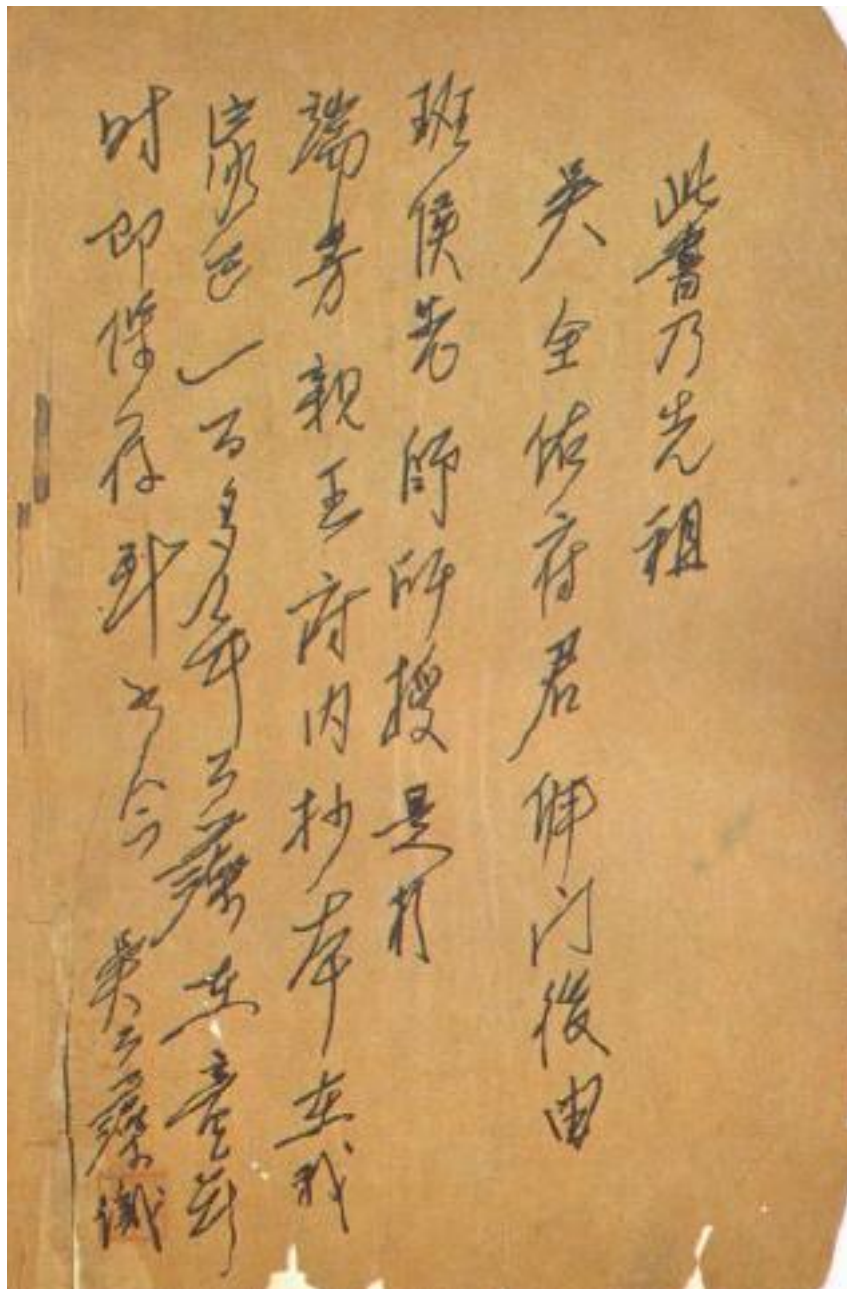 此書乃先祖
吳全佑府君拜门後由
班侯老師所授是於
端芳親王府内抄本在我
家已一百多年公藻在童年
时即保存到如今
吳公藻識